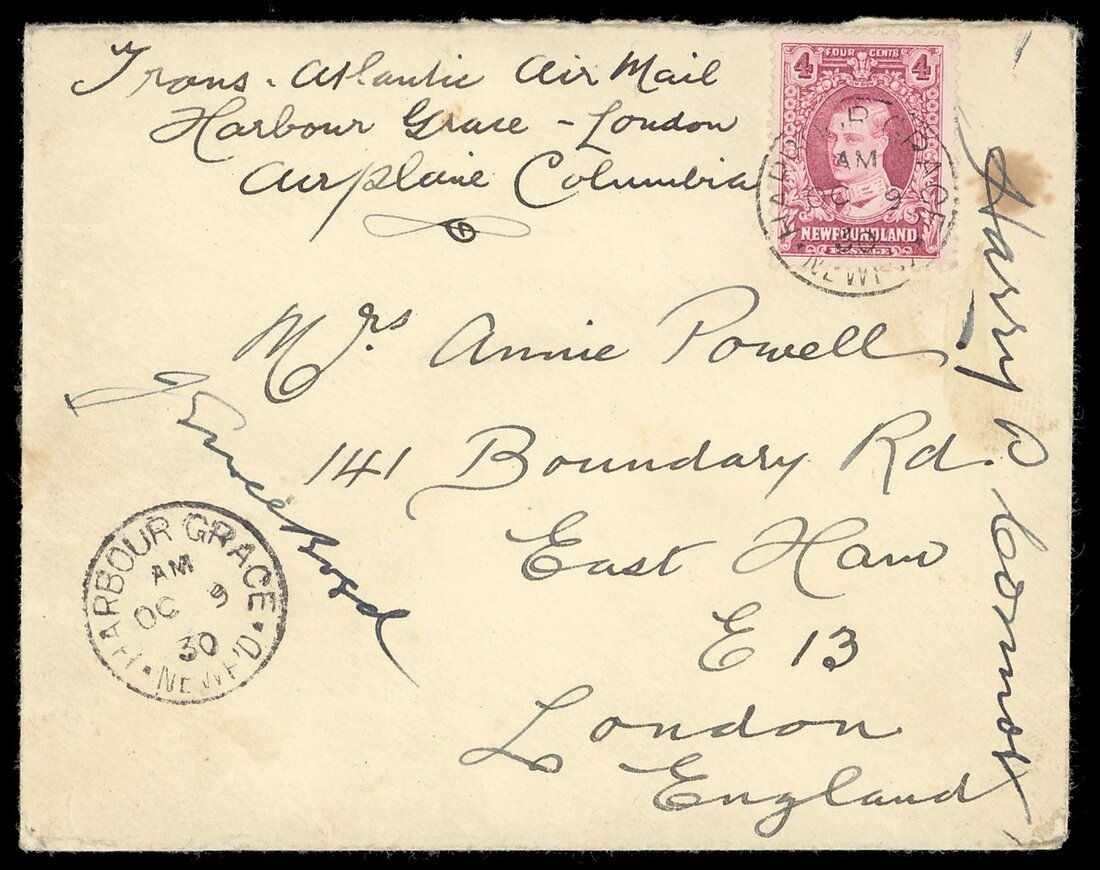 Trans-Atlantic Air Mail
Harbour Grace - London
Airplane Columbia
FOUR CENTS
4 4
NEWFOUNDLAND
HARBOUR GRACE
AM
OC 9
30
Mrs Annie Powell
141 Boundary Rd.
East Ham
E 13
London
England
J Errol Boyd
Harry P Connor
HARBOUR GRACE
AM
OC 9
30
NEWF'D